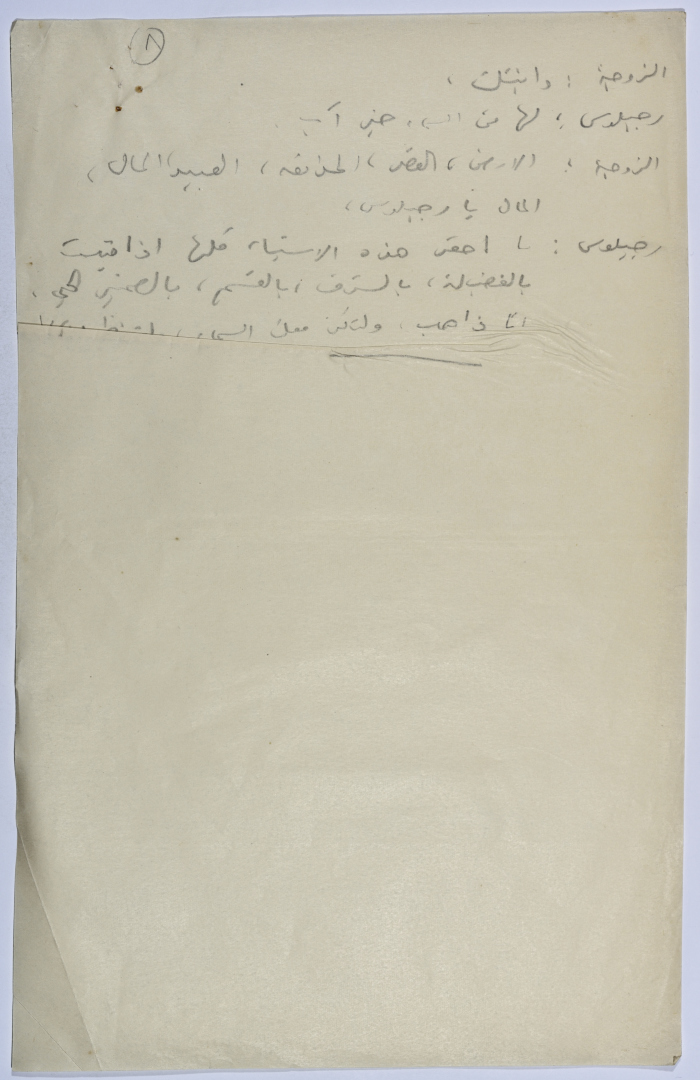 ٨
الزوجة : وابنتك ،
رجيلوس : لها من السماء خير أب .
الزوجة : الارض ، القصر ، الحدائق ، العبيد ، المال ،
المال يا رجيلوس ،
رجيلوس : ما احقر هذه الاشياء كلها اذا قيست
بالفضيلة ، بالشرف ، بالقسم ، بالضمير الحي .
انا ذاهب . ولتكن معك السماء .